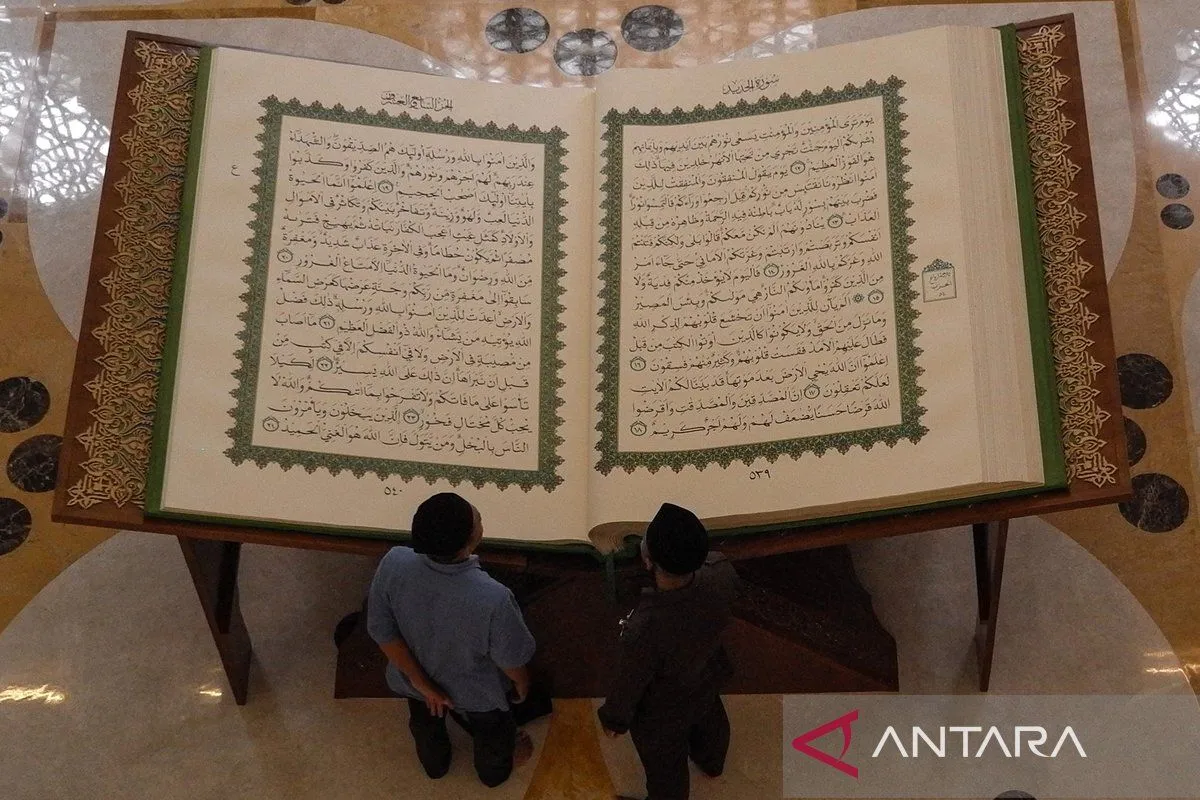 سُورَةُ الْحَدِيدِ
يَوْمَ تَرَى الْمُؤْمِنِينَ وَالْمُؤْمِنٰتِ يَسْعٰى نُورُهُمْ بَيْنَ اَيْدِيهِمْ وَبِاَيْمَانِهِمْ
بُشْرٰىكُمُ الْيَوْمَ جَنّٰتٌ تَجْرِي مِنْ تَحْتِهَا الْاَنْهٰرُ خٰلِدِينَ فِيهَا ذٰلِكَ
هُوَ الْفَوْزُ الْعَظِيمُ ١٢ يَوْمَ يَقُولُ الْمُنٰفِقُونَ وَالْمُنٰفِقٰتُ لِلَّذِينَ
اٰمَنُوا انْظُرُونَا نَقْتَبِسْ مِنْ نُورِكُمْ قِيلَ ارْجِعُوا وَرَاءَكُمْ فَالْتَمِسُوا نُورًا
فَضُرِبَ بَيْنَهُمْ بِسُورٍ لَهُ بَابٌ بَاطِنُهُ فِيهِ الرَّحْمَةُ وَظَاهِرُهُ مِنْ قِبَلِهِ
الْعَذَابُ ١٣ يُنَادُونَهُمْ اَلَمْ نَكُنْ مَعَكُمْ قَالُوا بَلٰى وَلٰكِنَّكُمْ فَتَنْتُمْ
اَنْفُسَكُمْ وَتَرَبَّصْتُمْ وَارْتَبْتُمْ وَغَرَّتْكُمُ الْاَمَانِيُّ حَتّٰى جَاءَ اَمْرُ
اللّٰهِ وَغَرَّكُمْ بِاللّٰهِ الْغَرُورُ ١٤ فَالْيَوْمَ لَا يُؤْخَذُ مِنْكُمْ فِدْيَةٌ وَلَا
مِنَ الَّذِينَ كَفَرُوا مَأْوٰىكُمُ النَّارُ هِيَ مَوْلٰىكُمْ وَبِئْسَ الْمَصِيرُ
١٥ ۞ اَلَمْ يَأْنِ لِلَّذِينَ اٰمَنُوا اَنْ تَخْشَعَ قُلُوبُهُمْ لِذِكْرِ اللّٰهِ
وَمَا نَزَلَ مِنَ الْحَقِّ وَلَا يَكُونُوا كَالَّذِينَ اُوتُوا الْكِتٰبَ مِنْ قَبْلُ
فَطَالَ عَلَيْهِمُ الْاَمَدُ فَقَسَتْ قُلُوبُهُمْ وَكَثِيرٌ مِنْهُمْ فٰسِقُونَ ١٦
اِعْلَمُوا اَنَّ اللّٰهَ يُحْيِ الْاَرْضَ بَعْدَ مَوْتِهَا قَدْ بَيَّنَّا لَكُمُ الْاٰيٰتِ
لَعَلَّكُمْ تَعْقِلُونَ ١٧ اِنَّ الْمُصَّدِّقِينَ وَالْمُصَّدِّقٰتِ وَاَقْرَضُوا
اللّٰهَ قَرْضًا حَسَنًا يُضٰعَفُ لَهُمْ وَلَهُمْ اَجْرٌ كَرِيمٌ ١٨
٥٣٩
الجزء السابع والعشرون
وَالَّذِينَ اٰمَنُوا بِاللّٰهِ وَرُسُلِهِ اُولٰئِكَ هُمُ الصِّدِّيقُونَ وَالشُّهَدَاءُ
عِنْدَ رَبِّهِمْ لَهُمْ اَجْرُهُمْ وَنُورُهُمْ وَالَّذِينَ كَفَرُوا وَكَذَّبُوا
بِاٰيٰتِنَا اُولٰئِكَ اَصْحٰبُ الْجَحِيمِ ١٩ اِعْلَمُوا اَنَّمَا الْحَيٰوةُ
الدُّنْيَا لَعِبٌ وَلَهْوٌ وَزِينَةٌ وَتَفَاخُرٌ بَيْنَكُمْ وَتَكَاثُرٌ فِي الْاَمْوَالِ
وَالْاَوْلَادِ كَمَثَلِ غَيْثٍ اَعْجَبَ الْكُفَّارَ نَبَاتُهُ ثُمَّ يَهِيجُ فَتَرٰىهُ
مُصْفَرًّا ثُمَّ يَكُونُ حُطَامًا وَفِي الْاٰخِرَةِ عَذَابٌ شَدِيدٌ وَمَغْفِرَةٌ
مِنَ اللّٰهِ وَرِضْوَانٌ وَمَا الْحَيٰوةُ الدُّنْيَا اِلَّا مَتَاعُ الْغُرُورِ ٢٠
سَابِقُوا اِلٰى مَغْفِرَةٍ مِنْ رَبِّكُمْ وَجَنَّةٍ عَرْضُهَا كَعَرْضِ السَّمَاءِ
وَالْاَرْضِ اُعِدَّتْ لِلَّذِينَ اٰمَنُوا بِاللّٰهِ وَرُسُلِهِ ذٰلِكَ فَضْلُ
اللّٰهِ يُؤْتِيهِ مَنْ يَشَاءُ وَاللّٰهُ ذُو الْفَضْلِ الْعَظِيمِ ٢١ مَا اَصَابَ
مِنْ مُصِيبَةٍ فِي الْاَرْضِ وَلَا فِي اَنْفُسِكُمْ اِلَّا فِي كِتٰبٍ مِنْ
قَبْلِ اَنْ نَبْرَاَهَا اِنَّ ذٰلِكَ عَلَى اللّٰهِ يَسِيرٌ ٢٢ لِكَيْلَا
تَأْسَوْا عَلٰى مَا فَاتَكُمْ وَلَا تَفْرَحُوا بِمَا اٰتٰىكُمْ وَاللّٰهُ لَا
يُحِبُّ كُلَّ مُخْتَالٍ فَخُورٍ ٢٣ اَلَّذِينَ يَبْخَلُونَ وَيَأْمُرُونَ
النَّاسَ بِالْبُخْلِ وَمَنْ يَتَوَلَّ فَاِنَّ اللّٰهَ هُوَ الْغَنِيُّ الْحَمِيدُ ٢٤
ع
٥٤٠
ANTARA